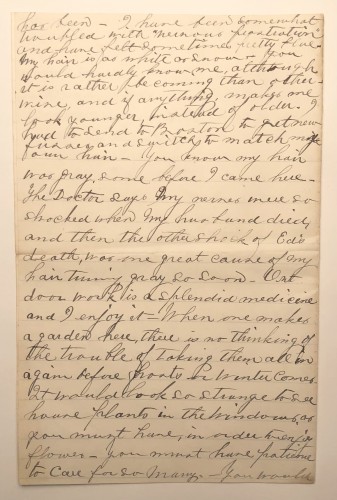 has been - I have been somewhat
troubled with nervous prostration
and have felt sometimes pretty blue
My hair is as white as snow - you
would hardly know me, although
it is rather becoming than other
wise, and if anything makes me
look younger, instead of older. I
had to send to Boston to get new
and switch to match my
own hair - You know my hair
was gray, some before I came here -
The Doctor says my nerves were so
shocked when my husband died,
and then the other shock of Ed's
death, was one great cause of my
hair turning gray so soon - Out
door work is a splendid medicine
and I enjoy it - When one makes
a garden here, there is no thinking of
the trouble of taking them all in
again before frosts or winter comes.
It would look so strange to see
house plants in the windows, as
you must have, in order to enjoy
flowers - you must have patience
to care for so many. - You would